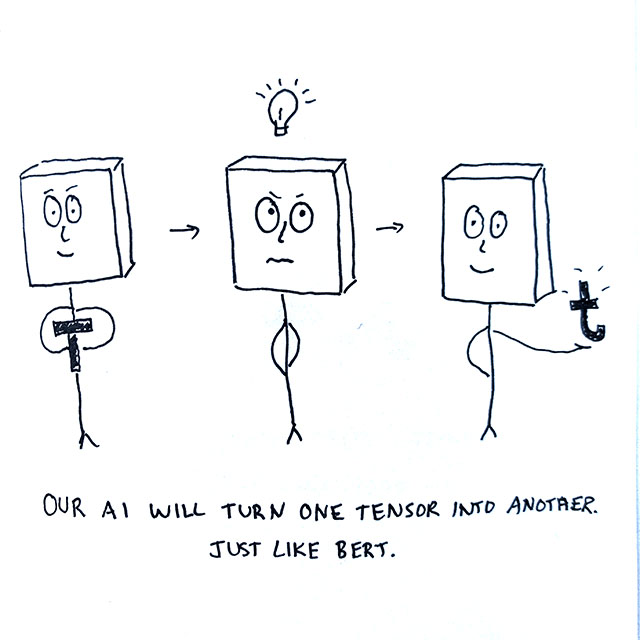 T
t
OUR AI WILL TURN ONE TENSOR INTO ANOTHER.
JUST LIKE BERT.